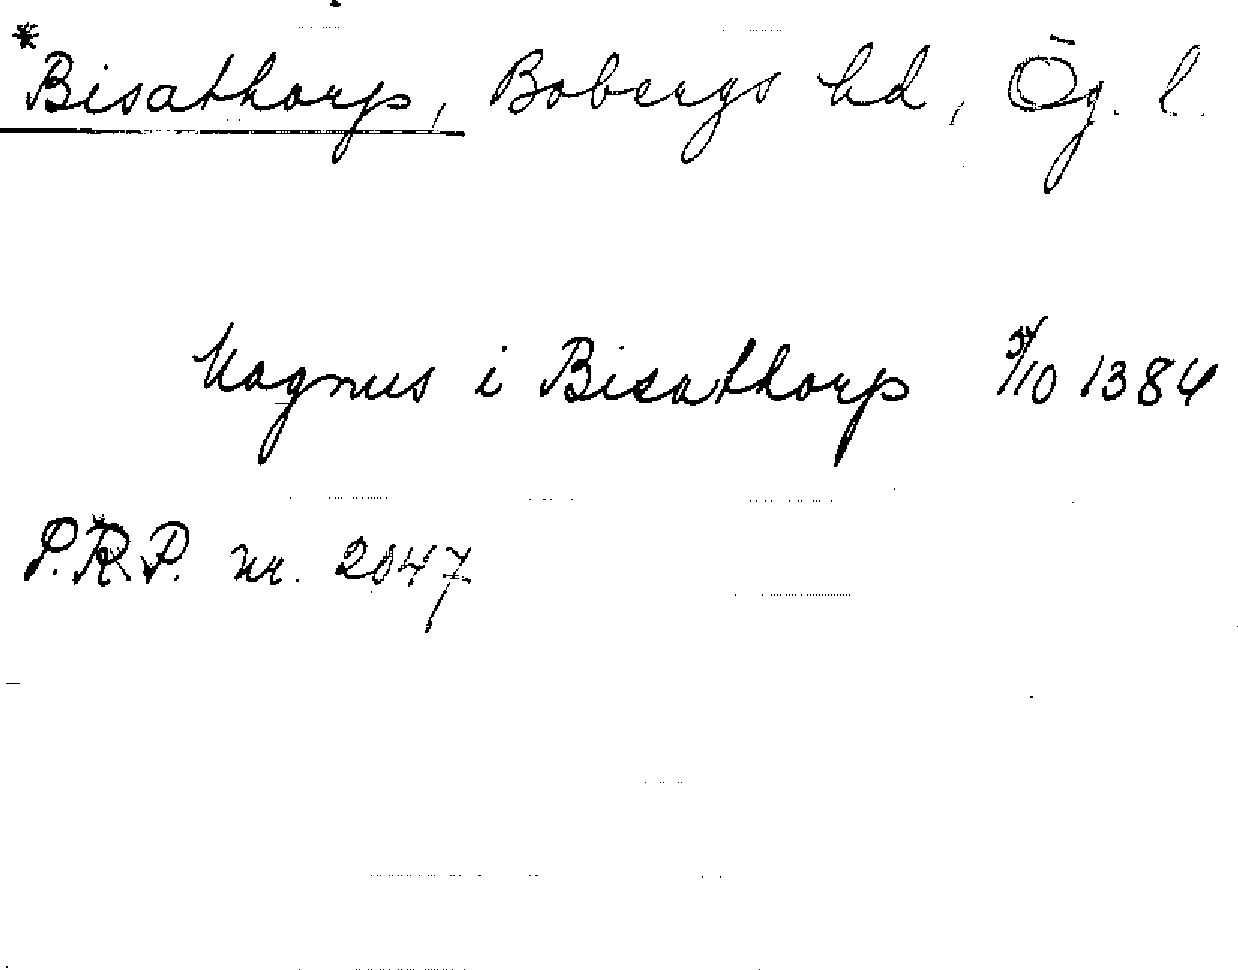 *Bisathorp, Bobergs hd, Ög. l.
Magnus i Bisathorp 31/10 1384
P.R.P. nr. 2047